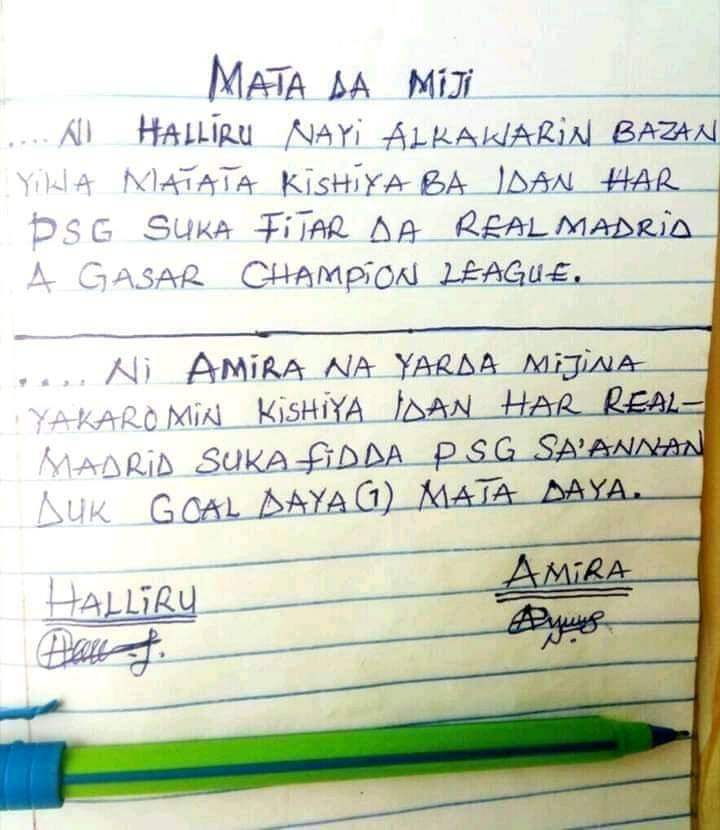 MATA DA MIJI
.... NI HALLIRU NAYI ALKAWARIN BAZAN
YIWA MATATA KISHIYA BA IDAN HAR
PSG SUKA FITAR DA REAL MADRID
A GASAR CHAMPION LEAGUE.
.... NI AMIRA NA YARDA MIJINA
YAKARO MIN KISHIYA IDAN HAR REAL-
MADRID SUKA FIDDA PSG SA'ANNAN
DUK GOAL DAYA (1) MATA DAYA.
HALLIRU
AMIRA